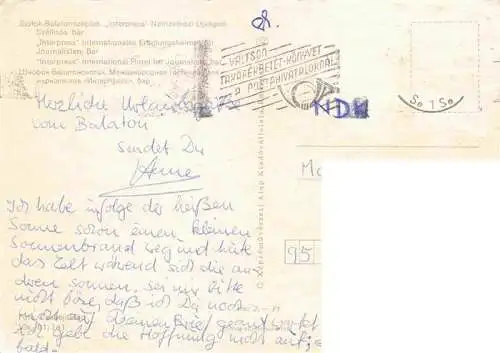 Siófok-Balatonszéplak. „Interpress" Nemzetközi Újságíró
Szálloda bár
„Interpress" Internationales Erholungsheim für
Journalisten: Bar
"Interpress" International Hotel for Journalists: bar
VÁLTSON
TAKARÉKBETÉT-KÖNYVET
A POSTAHIVATALOKNÁL
NDK
So 1 So
Herzliche Urlaubsgrüße
vom Balaton
sendet Dir
Anne
Ich habe infolge der heißen
Sonne schon einen kleinen
Sonnenbrand weg und hüte
das Zelt während sich die an-
dren sonnen. Sei mir bitte
nicht böse, daß ich Dir noch
nicht auf Deinen Brief geantwortet
Ich gebe die Hoffnung nicht auf,
bald-
© Képzőművészeti Alap Kiadóvállalata
95